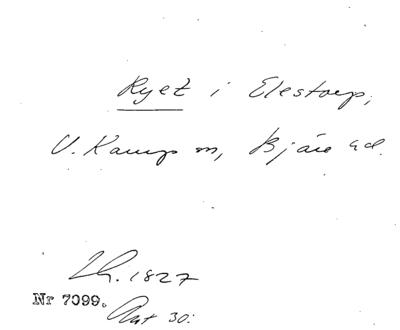 Ryet i Elestorp,
V. Karup sn, Bjäre hd.
Lh. 1827
Nr 7099.
Ant 30: